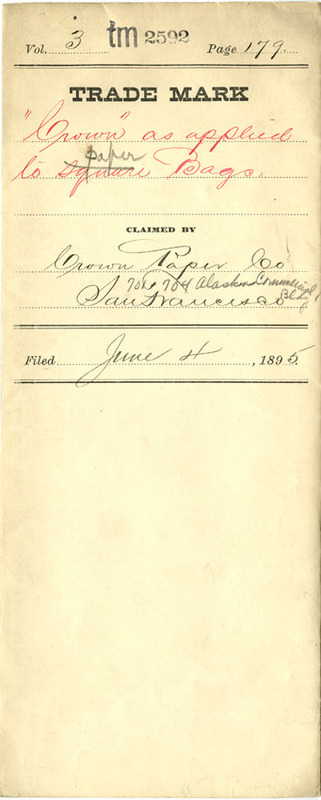 Vol. 3 tm 2592 Page 179.
TRADE MARK
"Crown" as applied
paper
to square Bags.
CLAIMED BY
Crown Paper Co
704 Alaska Commercial
Bldg
San Francisco
Filed June 4, 1895